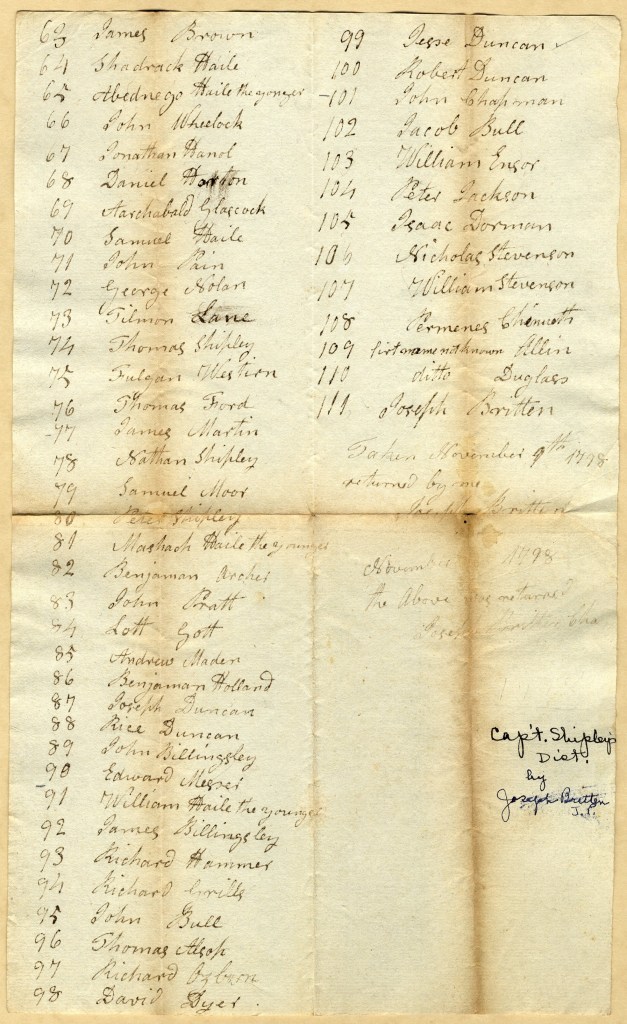 63 James Brown
64 Shadrack Haile
65 Abednego Haile the younger
66 John Wheelock
67 Jonathan Hanol
68 Daniel Horton
69 Aarchabald Glascock
70 Samuel Haile
71 John Pain
72 George Nolan
73 Tilmon Lane
74 Thomas Shipley
75 Fulgan
76 Thomas Ford
77 James Martin
78 Nathan Shipley
79 Samuel Moor
80 Peter Shipley
81 Mashach Haile the younger
82 Benjaman Archer
83 John Pratt
84 Lott Gott
85 Andrew Maden
86 Benjaman Holland
87 Joseph Duncan
88 Rice Duncan
89 John Billingsley
90 Edward
91 William Haile the younger
92 James Billingsley
93 Richard Hammer
94 Richard Grills
95 John Bull
96 Thomas Alsop
97 Richard
98 David Dyer
99 Jesse Duncan
100 Robert Duncan
101 John Chapman
102 Jacob Bull
103 William Ensor
104 Peter Jackson
105 Isaac Dorman
106 Nicholas Stevenson
107 William Stevenson
108 Permenes
109 first name not known Allin
110 ditto Duglass
111 Joseph Britten
Taken November 9th 1798
returned by me
Joseph Britten
November 1798
the Above was returned
Joseph Britten
Cap't. Shipley's
Dist.
by
Joseph Britten
J.P.